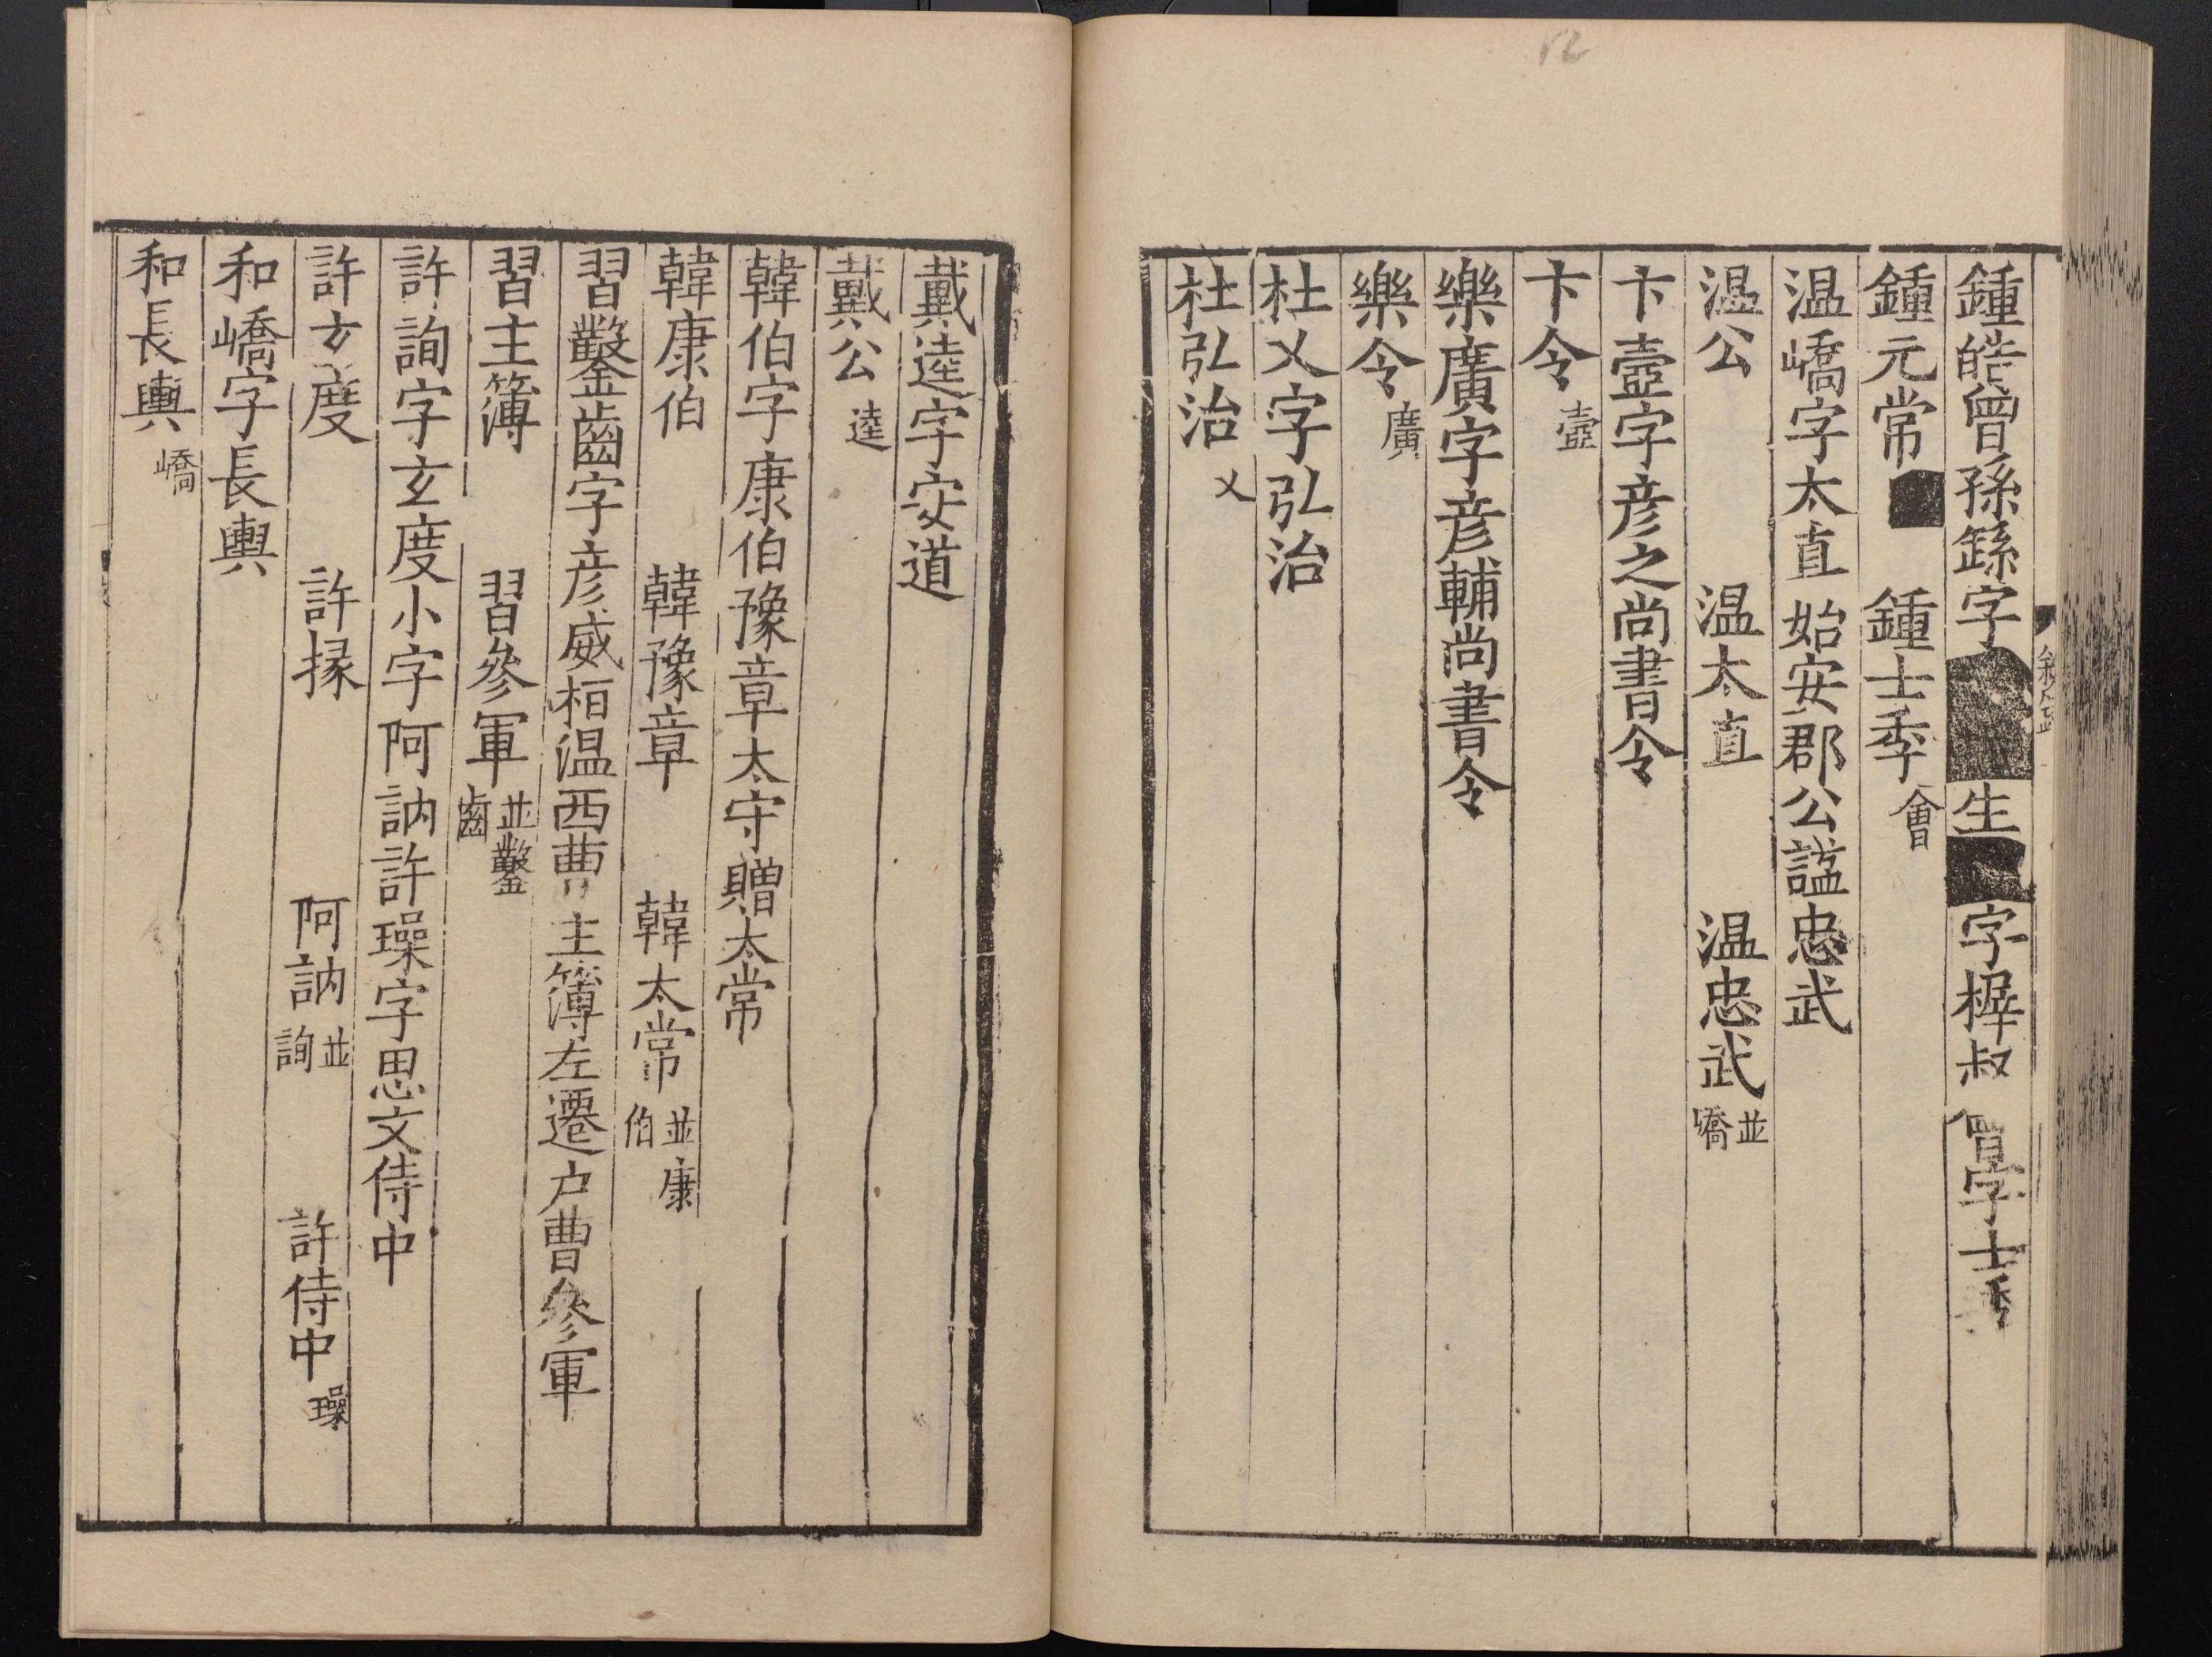 鍾皓曾孫繇字生字稺叔字士
鍾元常 鍾士季會
温嶠字太真始安郡公諡忠武
温公 温太真 温忠武並嶠
卞壼字彦之尚書令
卞令壼
樂廣字彦輔尚書令
樂令廣
杜乂字弘治
杜弘治乂
戴逵字安道
戴公逵
韓伯字康伯豫章太守贈太常
韓康伯 韓豫章 韓太常並康伯
習鑿齒字彦威桓温西曹主簿左遷户曹參軍
習主簿 習參軍並鑿齒
許詢字玄度小字阿訥許璪字思文侍中
許玄度 許掾 阿訥並詢 許侍中璪
和嶠字長輿
和長輿嶠